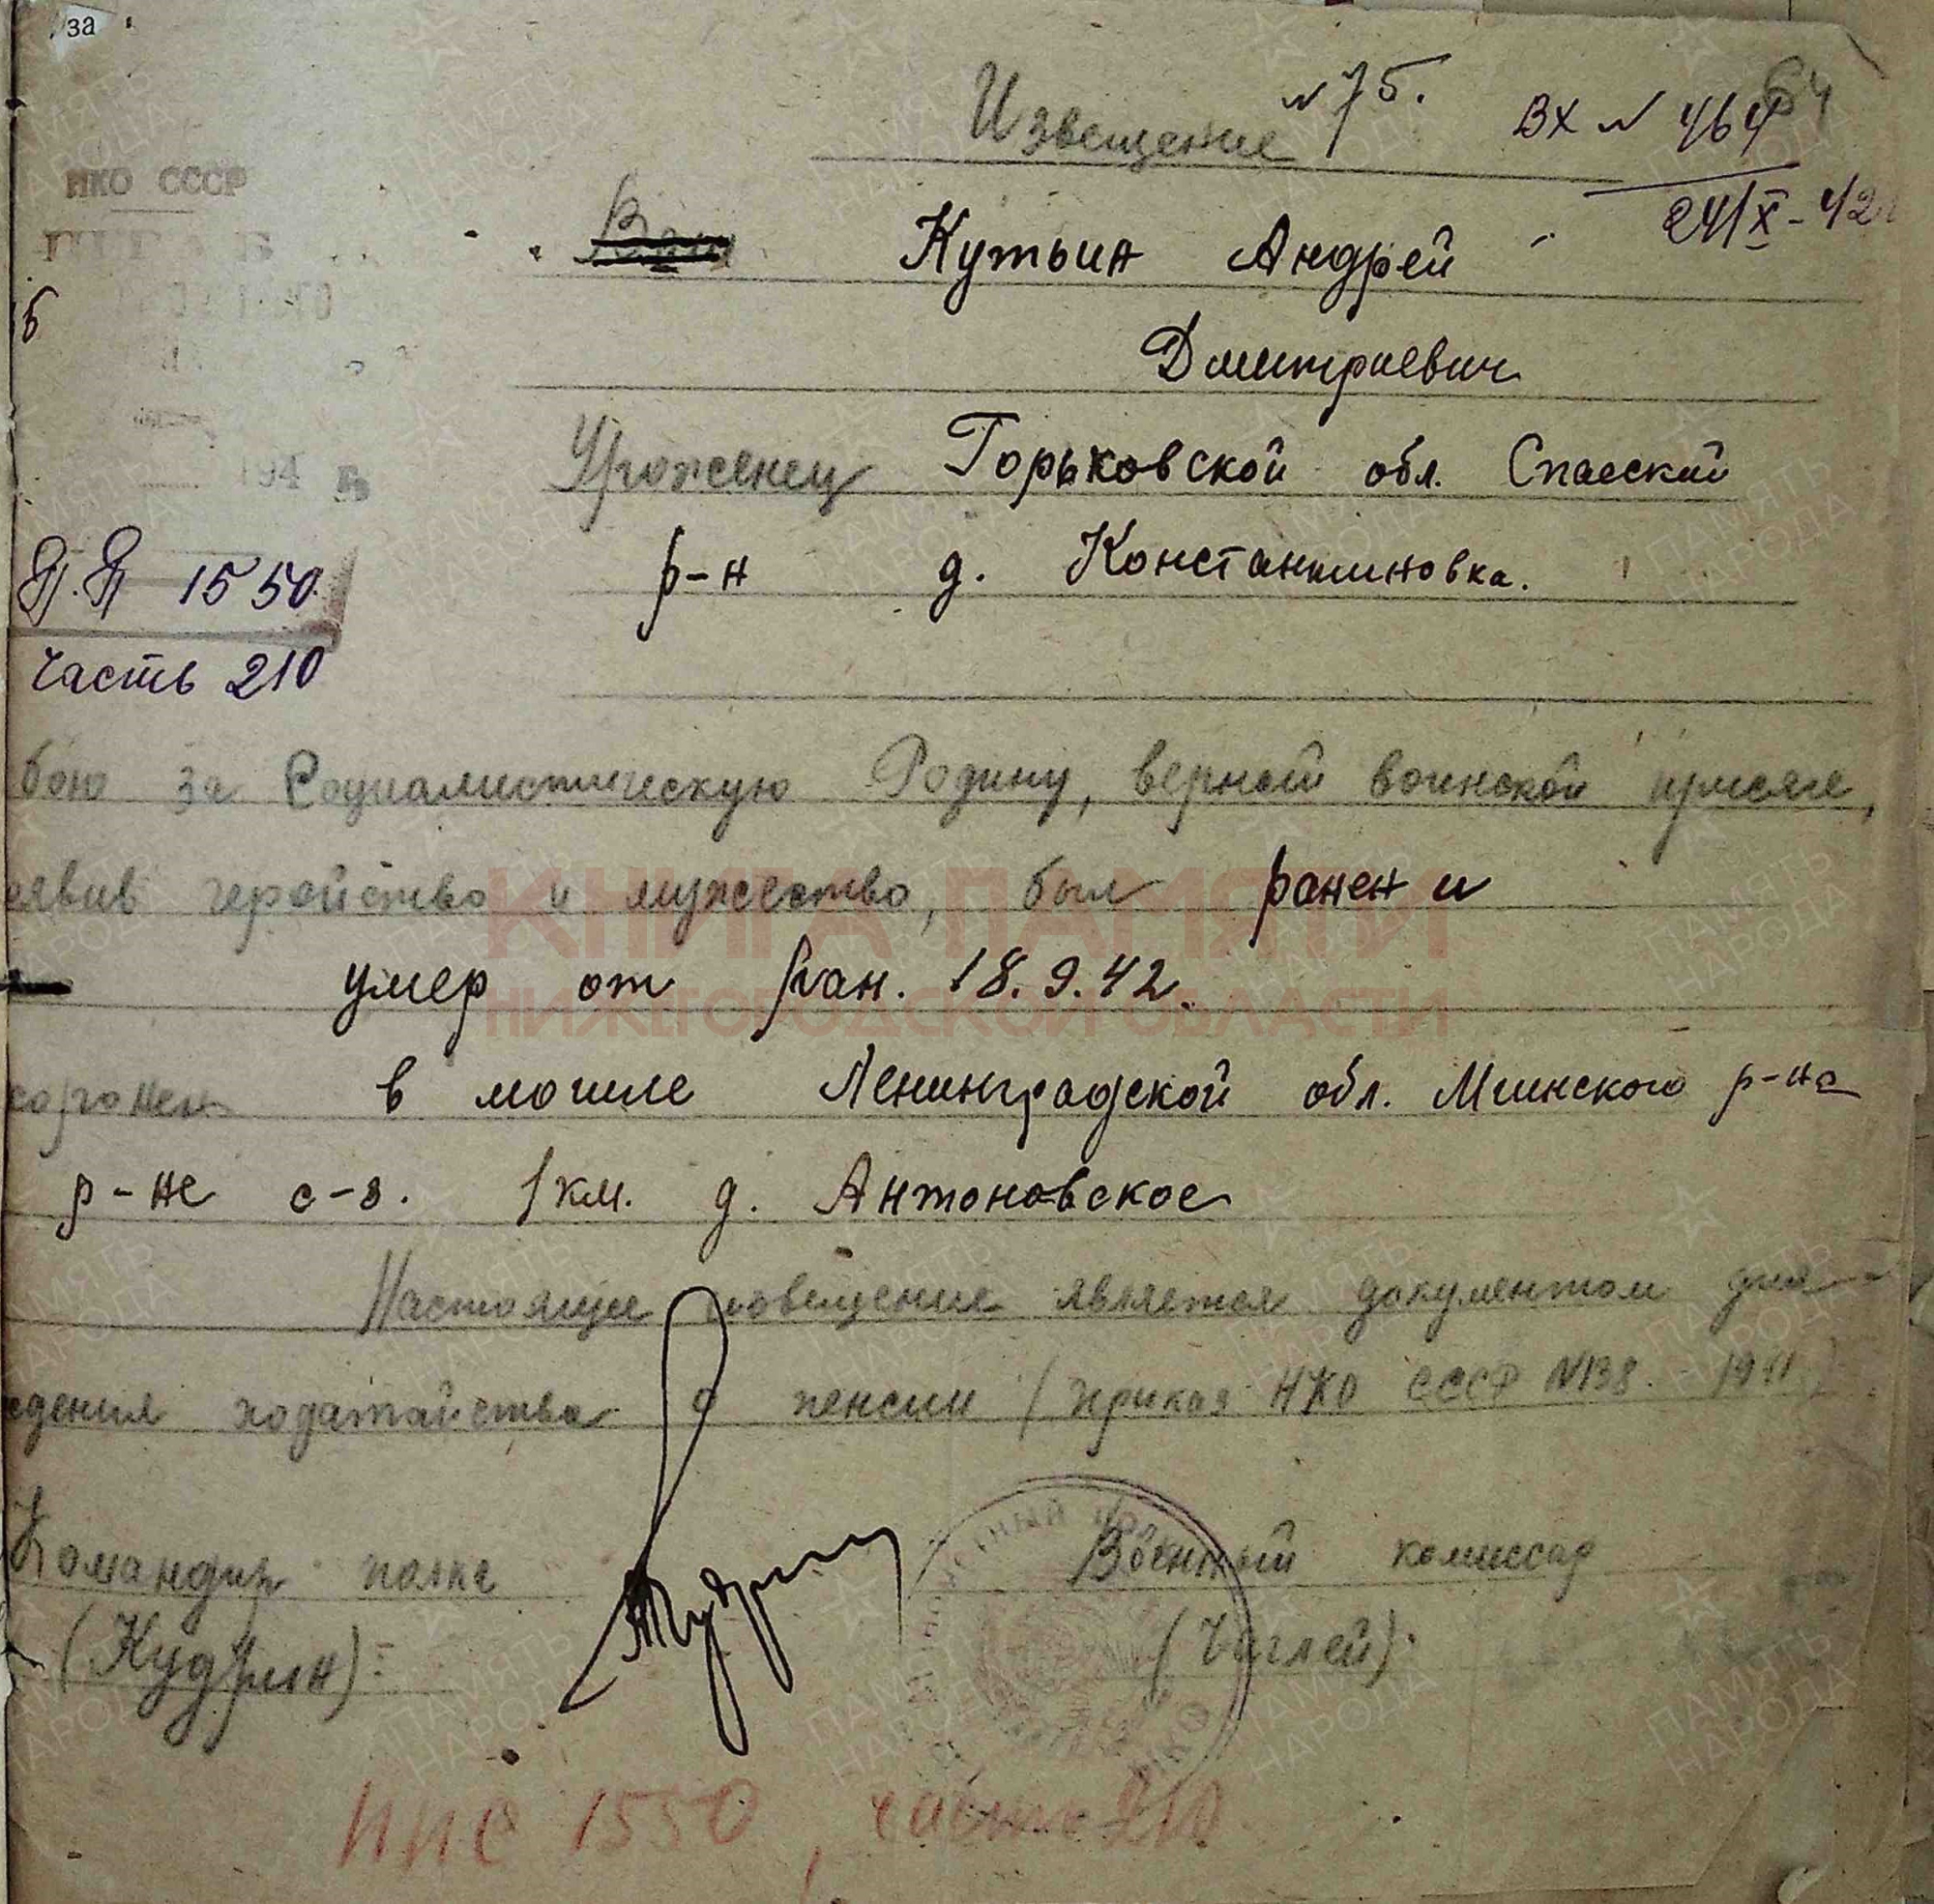 за
Извещение №75.
Вх № 464
24/X-42
64
НКО СССР
ШТАБ
Кутьин Андрей
Дмитриевич
194 г.
Уроженец Горьковской обл. Спасский
р-н д. Константиновка.
П.П 1550
часть 210
бою за Социалистическую Родину, верный воинской присяге,
оявив геройство и мужество, был ранен и
умер от ран. 18.9.42.
хоронен в могиле Ленинградской обл. Мгинского р-на
р-не с-в. 1 км. д. Антоновское
Настоящее извещение является документом для
ждения ходатайства о пенсии (приказ НКО СССР №138 - 1941)
Командир полка
Военный комиссар
(Кудрин):
ППС 1550, часть 210
КНИГА ПАМЯТИ
НИЖЕГОРОДСКОЙ ОБЛАСТИ
ПАМЯТЬ НАРОДА